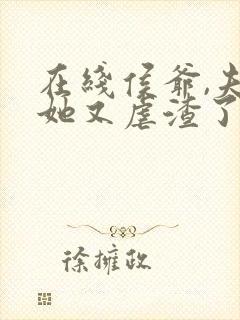 在线侯爷,夫
她又虐渣了
徐擁政